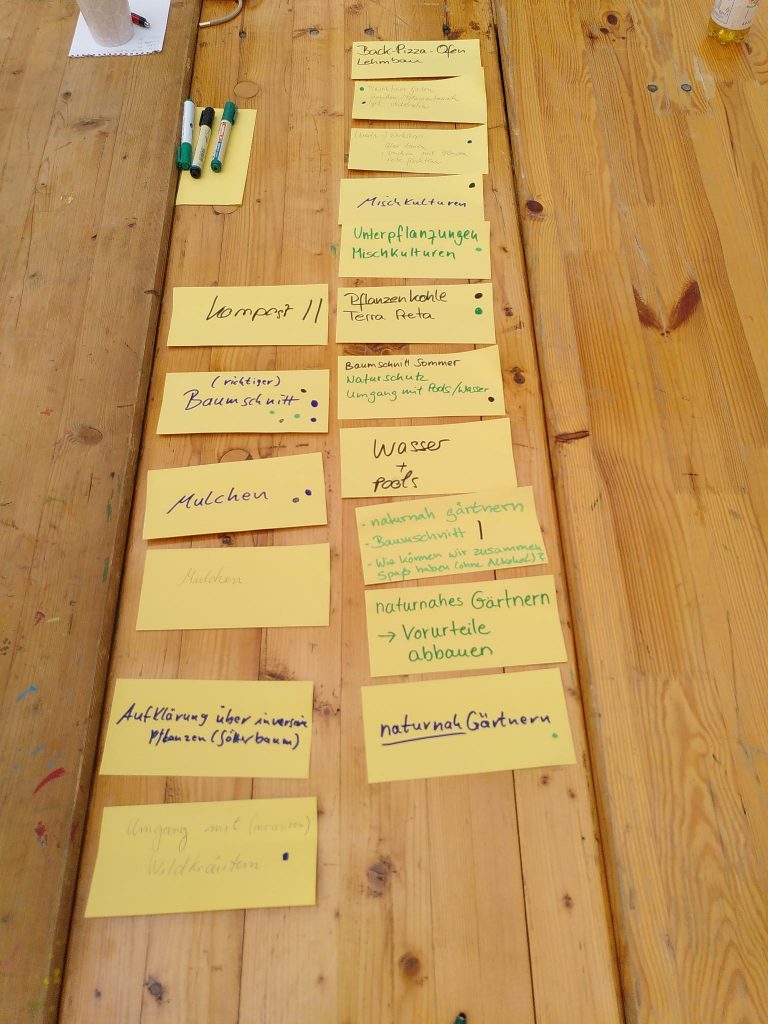 Back-Pizza-Ofen
Lehmbau
Mischkulturen
Unterpflanzungen
Mischkulturen
Pflanzenkohle
Terra Preta
Baumschnitt Sommer
Naturschutz
Umgang mit Pools/Wasser
Wasser
+
Pools
- naturnah gärtnern
- Baumschnitt |
- Wie können wir zusammen
Spaß haben (ohne Alkohol)?
naturnahes Gärtnern
→ Vorurteile
abbauen
naturnah Gärtnern
Kompost ||
(richtiger)
Baumschnitt
Mulchen
Mulchen
Aufklärung über
Pflanzen (Götterbaum)
Umgang mit
Wildkräutern